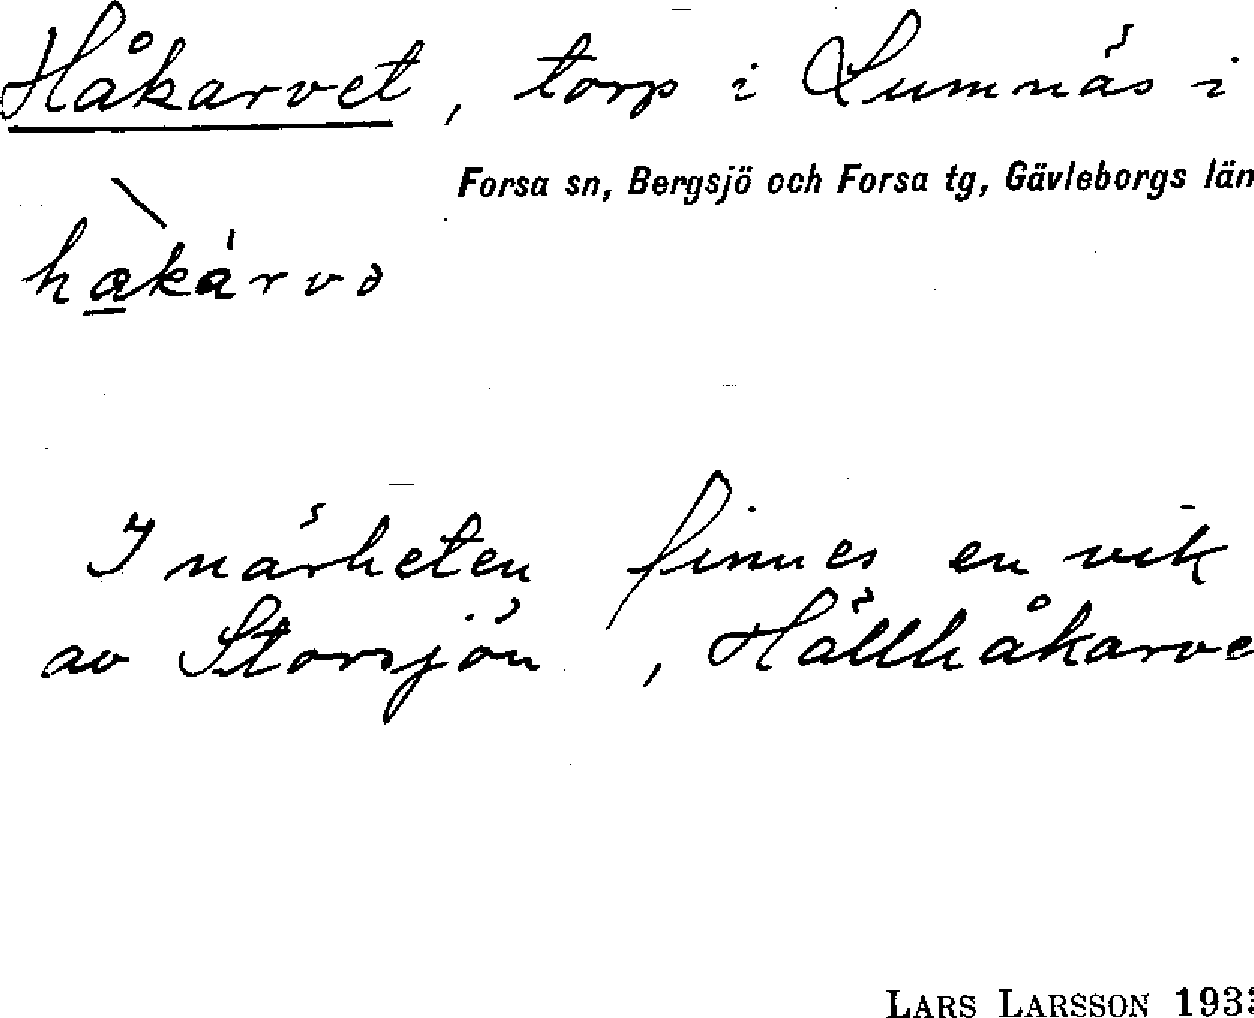 Håkarvet, torp i Lumnäs i
Forsa sn, Bergsjö och Forsa tg, Gävleborgs län
hakárvə
I närheten finnes en vik
av Storsjön, Hällhåkarve
LARS LARSSON 193